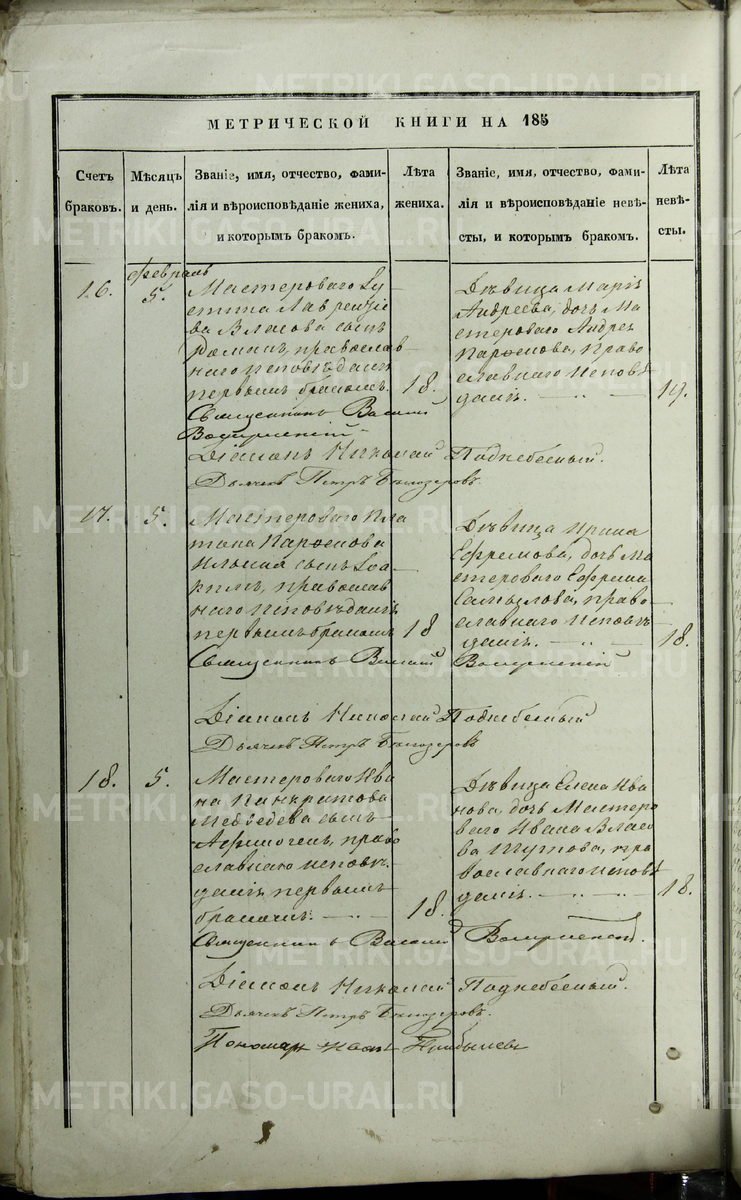 МЕТРИЧЕСКОЙ КНИГИ НА 185
Счетъ браковъ.
Мѣсяцъ и день.
Званіе, имя, отчество, фами-
лія и вѣроисповѣданіе жениха,
и которымъ бракомъ.
Лѣта жениха.
Званіе, имя, отчество, фами-
лія и вѣроисповѣданіе невѣ-
сты, и которымъ бракомъ.
Лѣта невѣ-
сты.
16.
февраль
5.
Мастероваго
стина Лаврентіе
ва Власова сынъ
Романъ, православ
наго исповѣданія
первымъ бракомъ.
18.
Дѣвица Марія
Андреева, дочь Ма
стероваго Андрея
Парѳенова, право
славнаго исповѣ
данія.
19.
Священникъ Василій
Діаконъ Николай Поднебесный.
Дьячекъ Петръ Бѣлозеровъ
17.
5.
Мастероваго Пла
тона Парѳенова
сынъ Іоа
кимъ, православ
наго исповѣданія
первымъ бракомъ
18
Дѣвица Ирина
Ефремова, дочь Ма
стероваго Ефрема
право
славнаго исповѣ
данія.
18.
Священникъ Василій
Діаконъ Николай Поднебесный
Дьячекъ Петръ Бѣлозеровъ
18.
5.
Мастероваго Ива
на Панкратова
Медведева сынъ
Афиногенъ, право
славнаго исповѣ
данія первымъ
бракомъ.
18.
Дѣвица Елена Ива
нова, дочь Мастеро
ваго Ивана Власо
ва Шутова, пра
вославнаго исповѣ
данія.
18.
Священникъ Василій
Діаконъ Николай Поднебесный.
Дьячекъ Петръ Бѣлозеровъ.
Пономарь Иванъ
METRIKI.GASO-URAL.RU